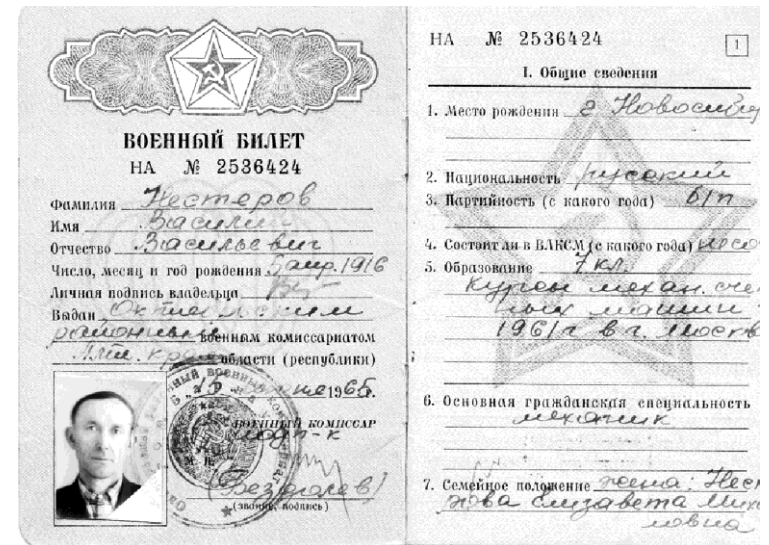 ВОЕННЫЙ БИЛЕТ
НА № 2536424
Фамилия Нестеров
Имя Василий
Отчество Васильевич
Число, месяц и год рождения 5 апр. 1916
Личная подпись владельца
Выдан Октябрьским
районным военным комиссариатом
Алт. края области (республики)
1965г.
ВОЕННЫЙ КОМИССАР
подп-к
(звание, подпись)
НА № 2536424
1
I. Общие сведения
1. Место рождения г Новосибир
2. Национальность русский
3. Партийность (с какого года) б/п
4. Состоит ли в ВЛКСМ (с какого года) несос
5. Образование 7 кл.
курсы механ. счет
ных машин
1961г в г. Москв
6. Основная гражданская специальность
механик
7. Семейное положение жена: Нест
рова Елизавета Миха
ловна